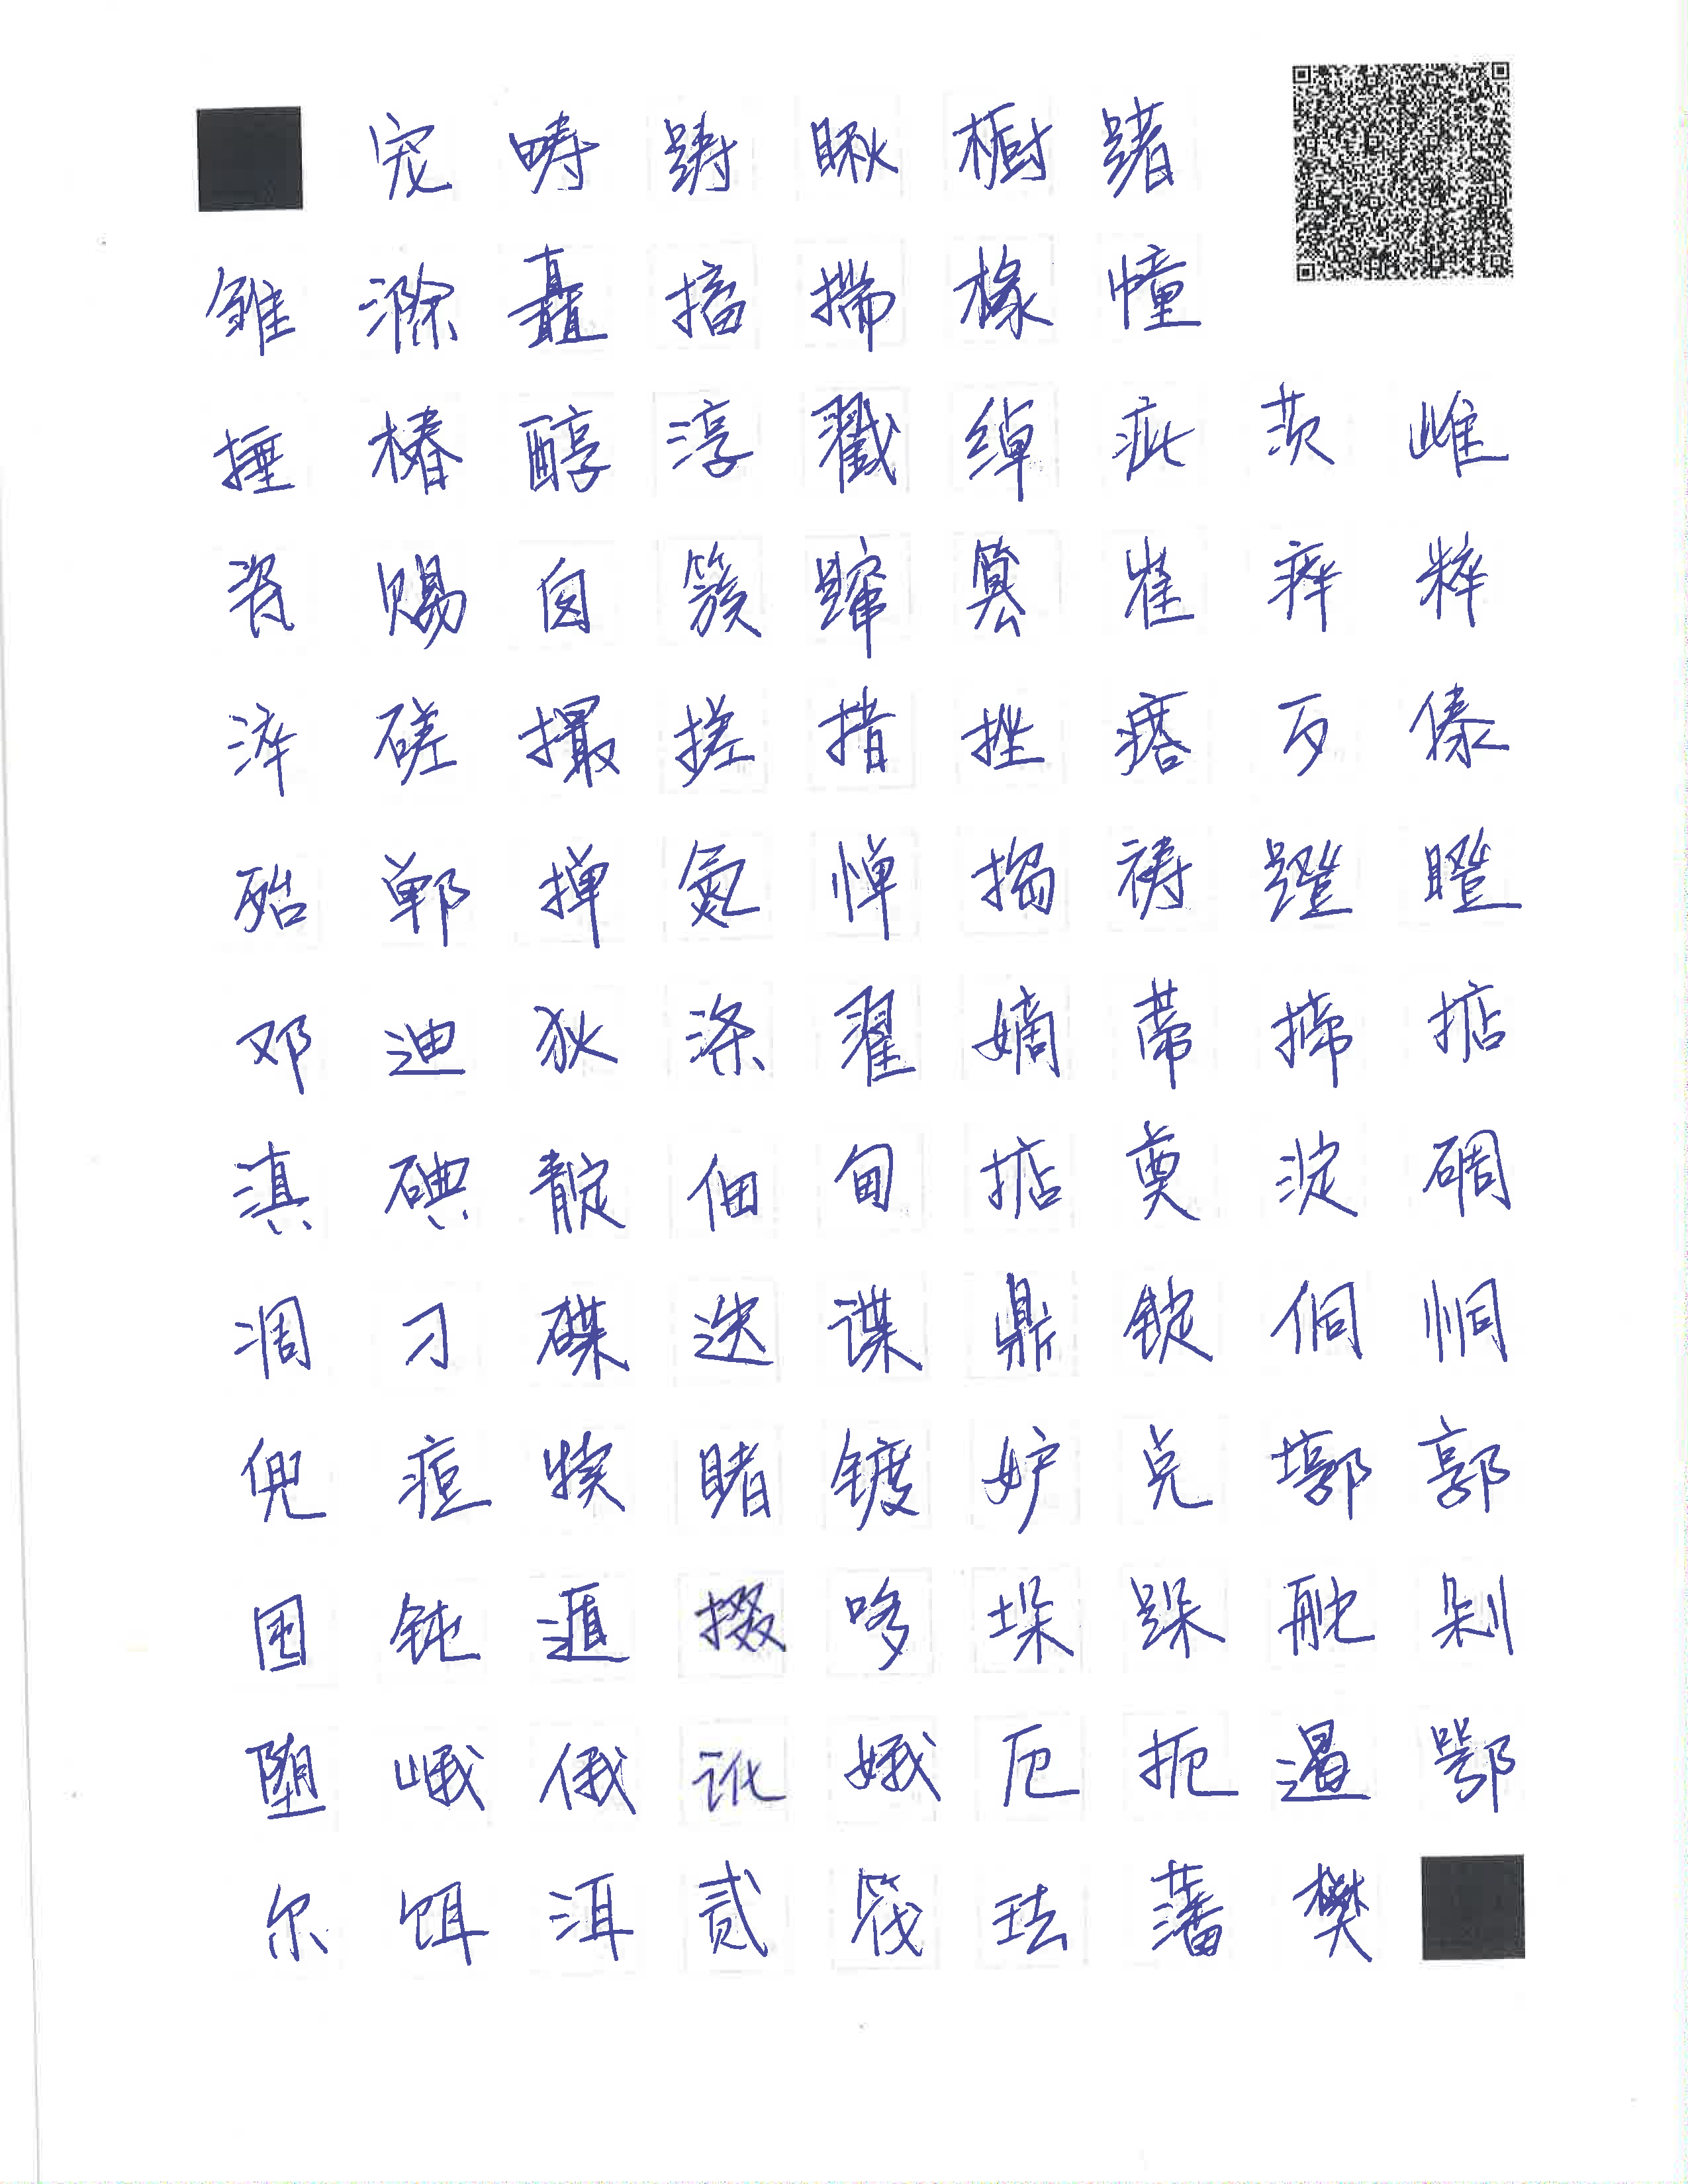 宠 畴 踌 瞅 橱 躇
雏 滁 矗 搐 揣 椽 幢
捶 椿 醇 淳 戳 绰 疵 茨 雌
瓷 赐 囱 簇 蹿 篡 崔 瘁 粹
淬 磋 撮 搓 措 挫 瘩 歹 傣
殆 郸 掸 氮 惮 捣 祷 蹬 瞪
邓 迪 狄 涤 翟 嫡 蒂 掂
滇 碘 靛 佃 甸 掂 奠 淀 碉
凋 刁 碟 迭 谍 鼎 锭 侗 恫
兜 痘 犊 睹 镀 妒 兑 墩
囤 钝 遁 掇 哆 垛 跺 舵 剁
堕 峨 俄 讹 娥 厄 扼 遏 鄂
尔 饵 洱 贰 筏 珐 藩 樊